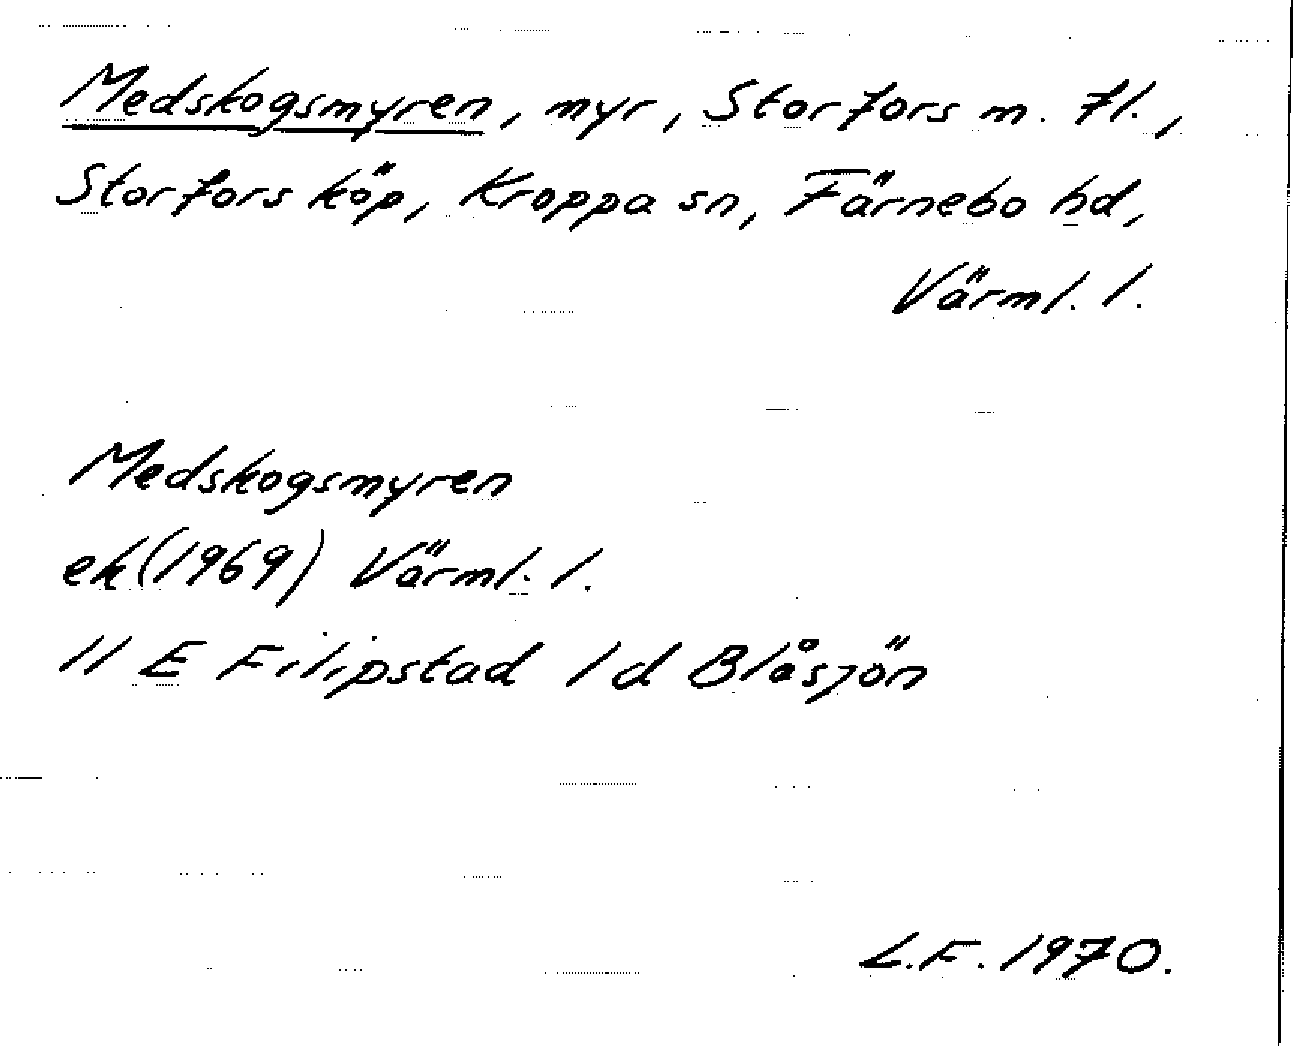 Medskogsmyren, myr, Storfors m. fl.,
Storfors köp, Kroppa sn, Färnebo hd,
Värml. l.
Medskogsmyren
ek (1969) Värml. l.
11 E Filipstad 1 d Blåsjön
L.F. 1970.